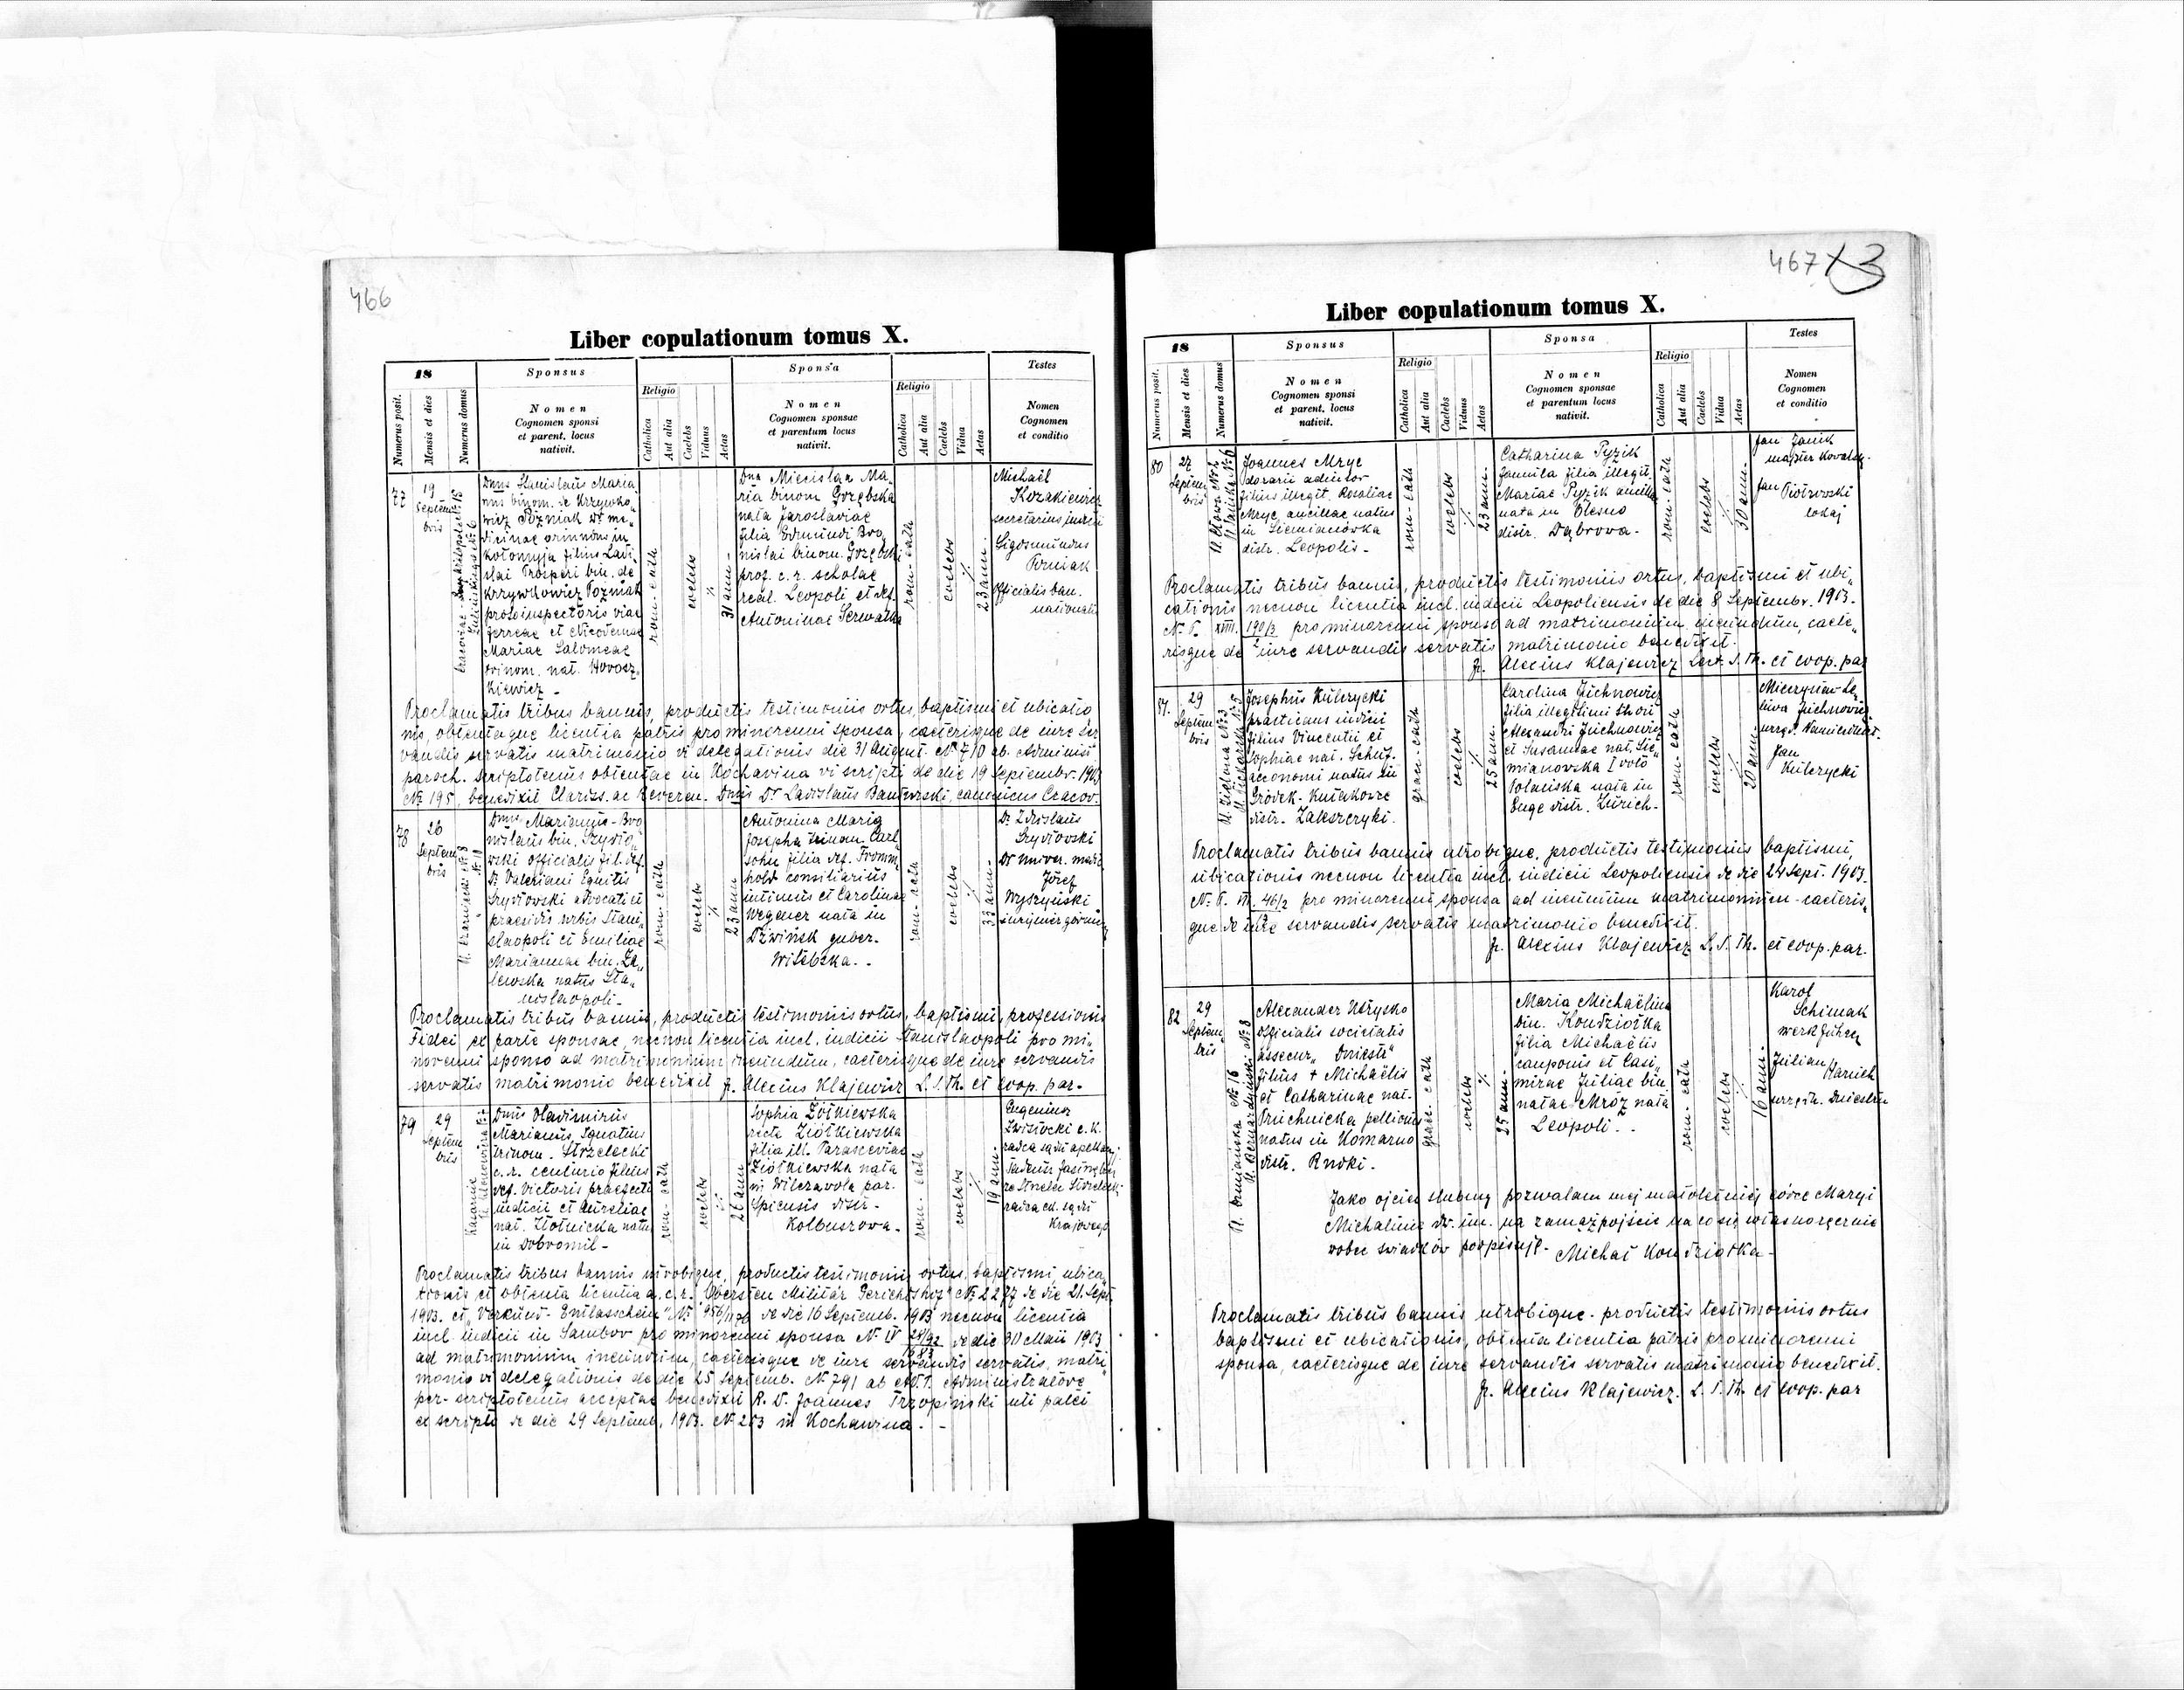 466
Liber copulationum tomus X.
18
Numerus posit.
Mensis et dies
Numerus domus
Sponsus
Nomen
Cognomen sponsi
et parent. locus
nativit.
Religio
Catholica
Aut alia
Caelebs
Viduus
Aetas
Sponsa
Nomen
Cognomen sponsae
et parentum locus
nativit.
Religio
Catholica
Aut alia
Caelebs
Vidua
Aetas
Testes
Nomen
Cognomen
et conditio
77
19
Septem
bris
Dnus Stanislaus Maria
nus binom. de Krzywko„
wicz Poźniak Dr me„
dicinae oriundus in
Kołomyja filius Ladi„
slai Prosperi bin. de
Krzywkowicz Poźniak
protoinspectoris viae
ferreae et Nicodemae
Mariae Salomeae
trinom. nat. Horosz„
kiewicz -
rom-cath
coelebs
31 ann.
Dna Miecislaa Ma„
ria binom Gorzębska
nata Jaroslaviae
filia Edmundi Bro„
nislai binom. Gorzębski
prof. c. r. scholae
real. Leopoli et def.
Antoninae Serwatka
rom-cath
coelebs
23 ann.
Michaël
Kozakiewicz
secretarius
Sigismundus
officialis ban.
nationalis
Proclamatis tribus bannis, productis testimoniis ortus, baptismi et ubicatio
nis, obtentaque licentia patris pro minorenni sponsa, caeterisque de iure ser„
vandis servatis matrimonio vi delegationis die 31 August. № 710 ab. Administ.
paroch. scriptotenus obtentae in Kochavina vi scripti de die 19 Septembr. 1903
№ 195, benedixit Clariss. ac Reveren. Dnus Dr Ladislaus Bandurski, canonicus Cracov.
78
26
Septem
bris
Dnus Marianus-Bro„
nislaus bin. Szydło„
wski officialis fil. def.
Dr Valeriani Equitis
Szydłowski advocati et
praesidis urbis Stani„
slaopoli et Emiliae
Mariannae bin. Za„
lewska natus Sta„
nislaopoli-
rom-cath
coelebs
23 ann
Antonina Maria
Josepha trinom. Carl„
sohn filia def. Fromm„
hold consiliarius
intimus et Carolinae
Wegener nata in
Dźwińsk guber.
Witebska. .
rom-cath
coelebs
33 ann.
Dr Zdzislaus
Szydłowski
Dr univer. med.
Józef
Wyszyński
inżynier górniczy
Proclamatis tribus bannis, productis testimoniis ortus, baptismi, professionis
Fidei ex parte sponsae, necnon licentia incl. iudicii Stanislaopoli pro mi„
norenni sponso ad matrimonium ineundum, caeterisque de iure servandis
servatis matrimonio benedixit fr. Alexius Klajewicz L. S. Th. et coop. par.
79
29
Septem
bris
Dnus Vladimirus
Marianus Ignatius
trinom. Strzelecki
c. r. centurio filius
def. Victoris praefecti
iudicii et Aureliae
nat. Złotnicka natus
in Dobromil-
rom-cath
coelebs
26 ann
Sophia Żółkiewska
recte Ziółkiewska
filia ill. Parasceviae
Ziółkiewska nata
in Wilczawola par.
Spiensis distr.
Kolbuszowa.
rom-cath
coelebs
19 ann.
Eugeniusz
c. k.
radca sądu apelkacyj.
radca sądu
Krajowego
Proclamatis tribus bannis utrobique, productis testimoniis ortus, baptismi, ubica„
tionis et obtenta licentia a c. r. Obersten Militär Gerichtshof № 2277 de die 21. Sept.
1903. et „Verkünd-Entlasschein" № de die 16 Septemb. 1903 necnon licentia
incl. iudicii in Sambor pro minorenni sponsa № IV de die 30 Maii 1903
ad matrimonium ineundum, caeterisque de iure servandis servatis, matri„
monio vi delegationis de die 25 Septemb. № 791 ab Administratore
par. scriptotenus acceptae benedixit R. D. Joannes Trzopiński uti patet
ex scripto de die 29 Septemb. 1903. № 203 in Kochawina. -
467
Liber copulationum tomus X.
18
Numerus posit.
Mensis et dies
Numerus domus
Sponsus
Nomen
Cognomen sponsi
et parent. locus
nativit.
Religio
Catholica
Aut alia
Caelebs
Viduus
Aetas
Sponsa
Nomen
Cognomen sponsae
et parentum locus
nativit.
Religio
Catholica
Aut alia
Caelebs
Vidua
Aetas
Testes
Nomen
Cognomen
et conditio
80
27
Septem
bris
Joannes Mryc
adiutor
filius illegit. Rosaliae
Mryc ancillae natus
in Siemianówka
distr. Leopolis-
rom-cath
coelebs
23 ann.
Catharina Pyzik
famula filia illegit.
Mariae Pyzik ancillae
nata in Olesno
distr. Dąbrowa.
rom-cath
coelebs
30 ann.
Jan Janik
majster kowalsk.
Jan Piotrowski
lokaj
Proclamatis tribus bannis, productis testimoniis ortus, baptismi et ubi„
cationis necnon licentia incl. iudicii Leopoliensis de die 8 Septembr. 1903.
pro minorenni sponso ad matrimonium ineundum, caete„
risque de iure servandis servatis matrimonio benedixit.
fr. Alexius Klajewicz Lect. S. Th. et coop. par
81.
29
Septem
bris
Josephus Kulczycki
practicans iudicii
filius Vincentii et
Sophiae nat. Schuf.
oeconomi natus in
Gródek-Kułakowce
distr. Zaleszczyki.
graec-cath
coelebs
25 ann.
Carolina Zuchnowicz
filia illegitimi thori
Alexandri Zuchnowicz
et Susannae nat. Sie„
mianowska I voto
Polańska nata in
Enge distr. Zürich.
rom-cath
coelebs
20 ann.
Mieczysław
Zuchnowicz
urzęd. Namiestnict.
Jan
Kulczycki
Proclamatis tribus bannis utrobique, productis testimoniis baptismi,
ubicationis necnon licentia incl. iudicii Leopoliensis de die 24 Sept. 1903.
pro minorenni sponsa ad ineundum matrimonium caeteris„
que de iure servandis servatis matrimonio benedixit.
fr. Alexius Klajewicz L. S. Th. et coop. par.
82
29
Septem
bris
Alexander Ustrycko
officialis societatis
assecur. „Dniestr"
filius + Michaëlis
et Catharinae nat.
Pruchnicka pellionis
natus in Komarno
distr. Rudki.
graec-cath
coelebs
25 ann.
Maria Michaëlina
bin. Kondziołka
filia Michaëlis
cauponis et Casi„
mirae Juliae bin.
natae Mróz nata
Leopoli. .
rom-cath
coelebs
16 ann.
Karol
Schimak
werkführer
Julian
urzędn. Dniestru
Jako ojciec ślubny pozwalam mej małoletniej córce Maryi
Michalinie dw. im. na zamążpójście na co się własnoręcznie
wobec świadków podpisuję. Michał Kondziołka-
Proclamatis tribus bannis utrobique. productis testimoniis ortus
baptismi et ubicationis, obtenta licentia patris pro minorenni
sponsa, caeterisque de iure servandis servatis matrimonio benedixit.
fr. Alexius Klajewicz. L. S. Th. et coop. par